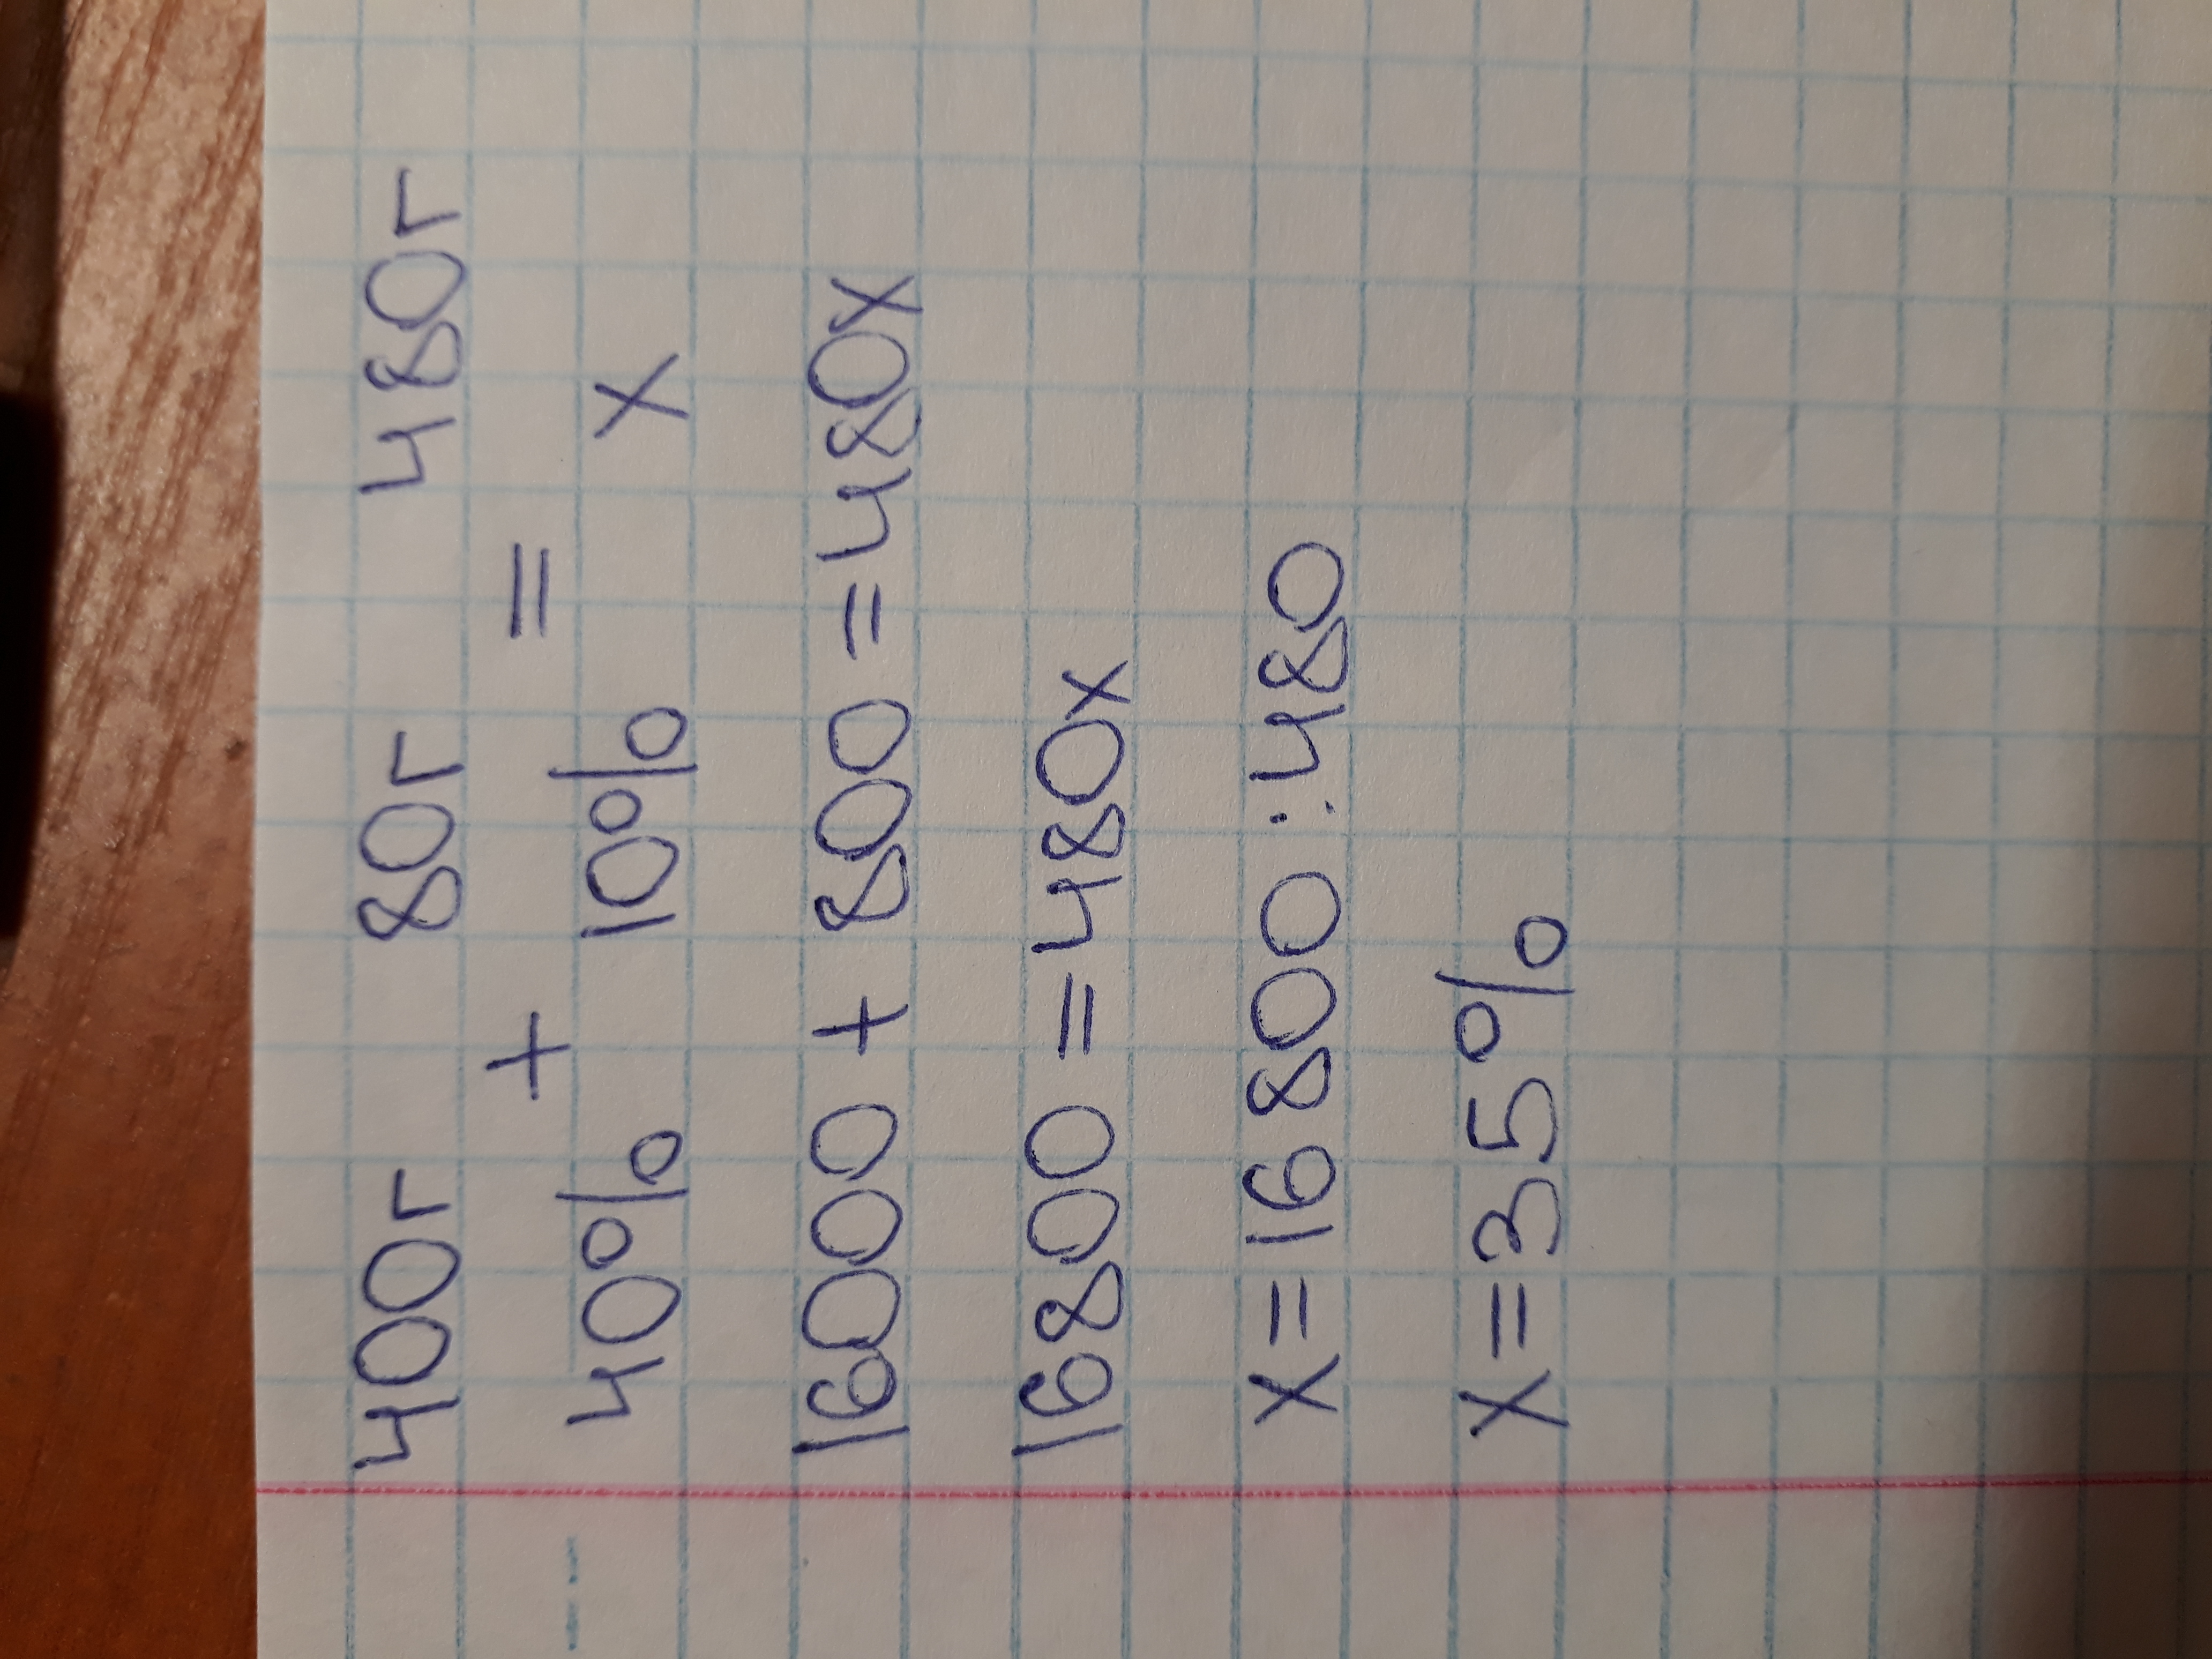 400г 80г 480г
+ =
40% 10% х
16000 + 800 = 480х
16800 = 480х
х = 16800 : 480
х = 35%